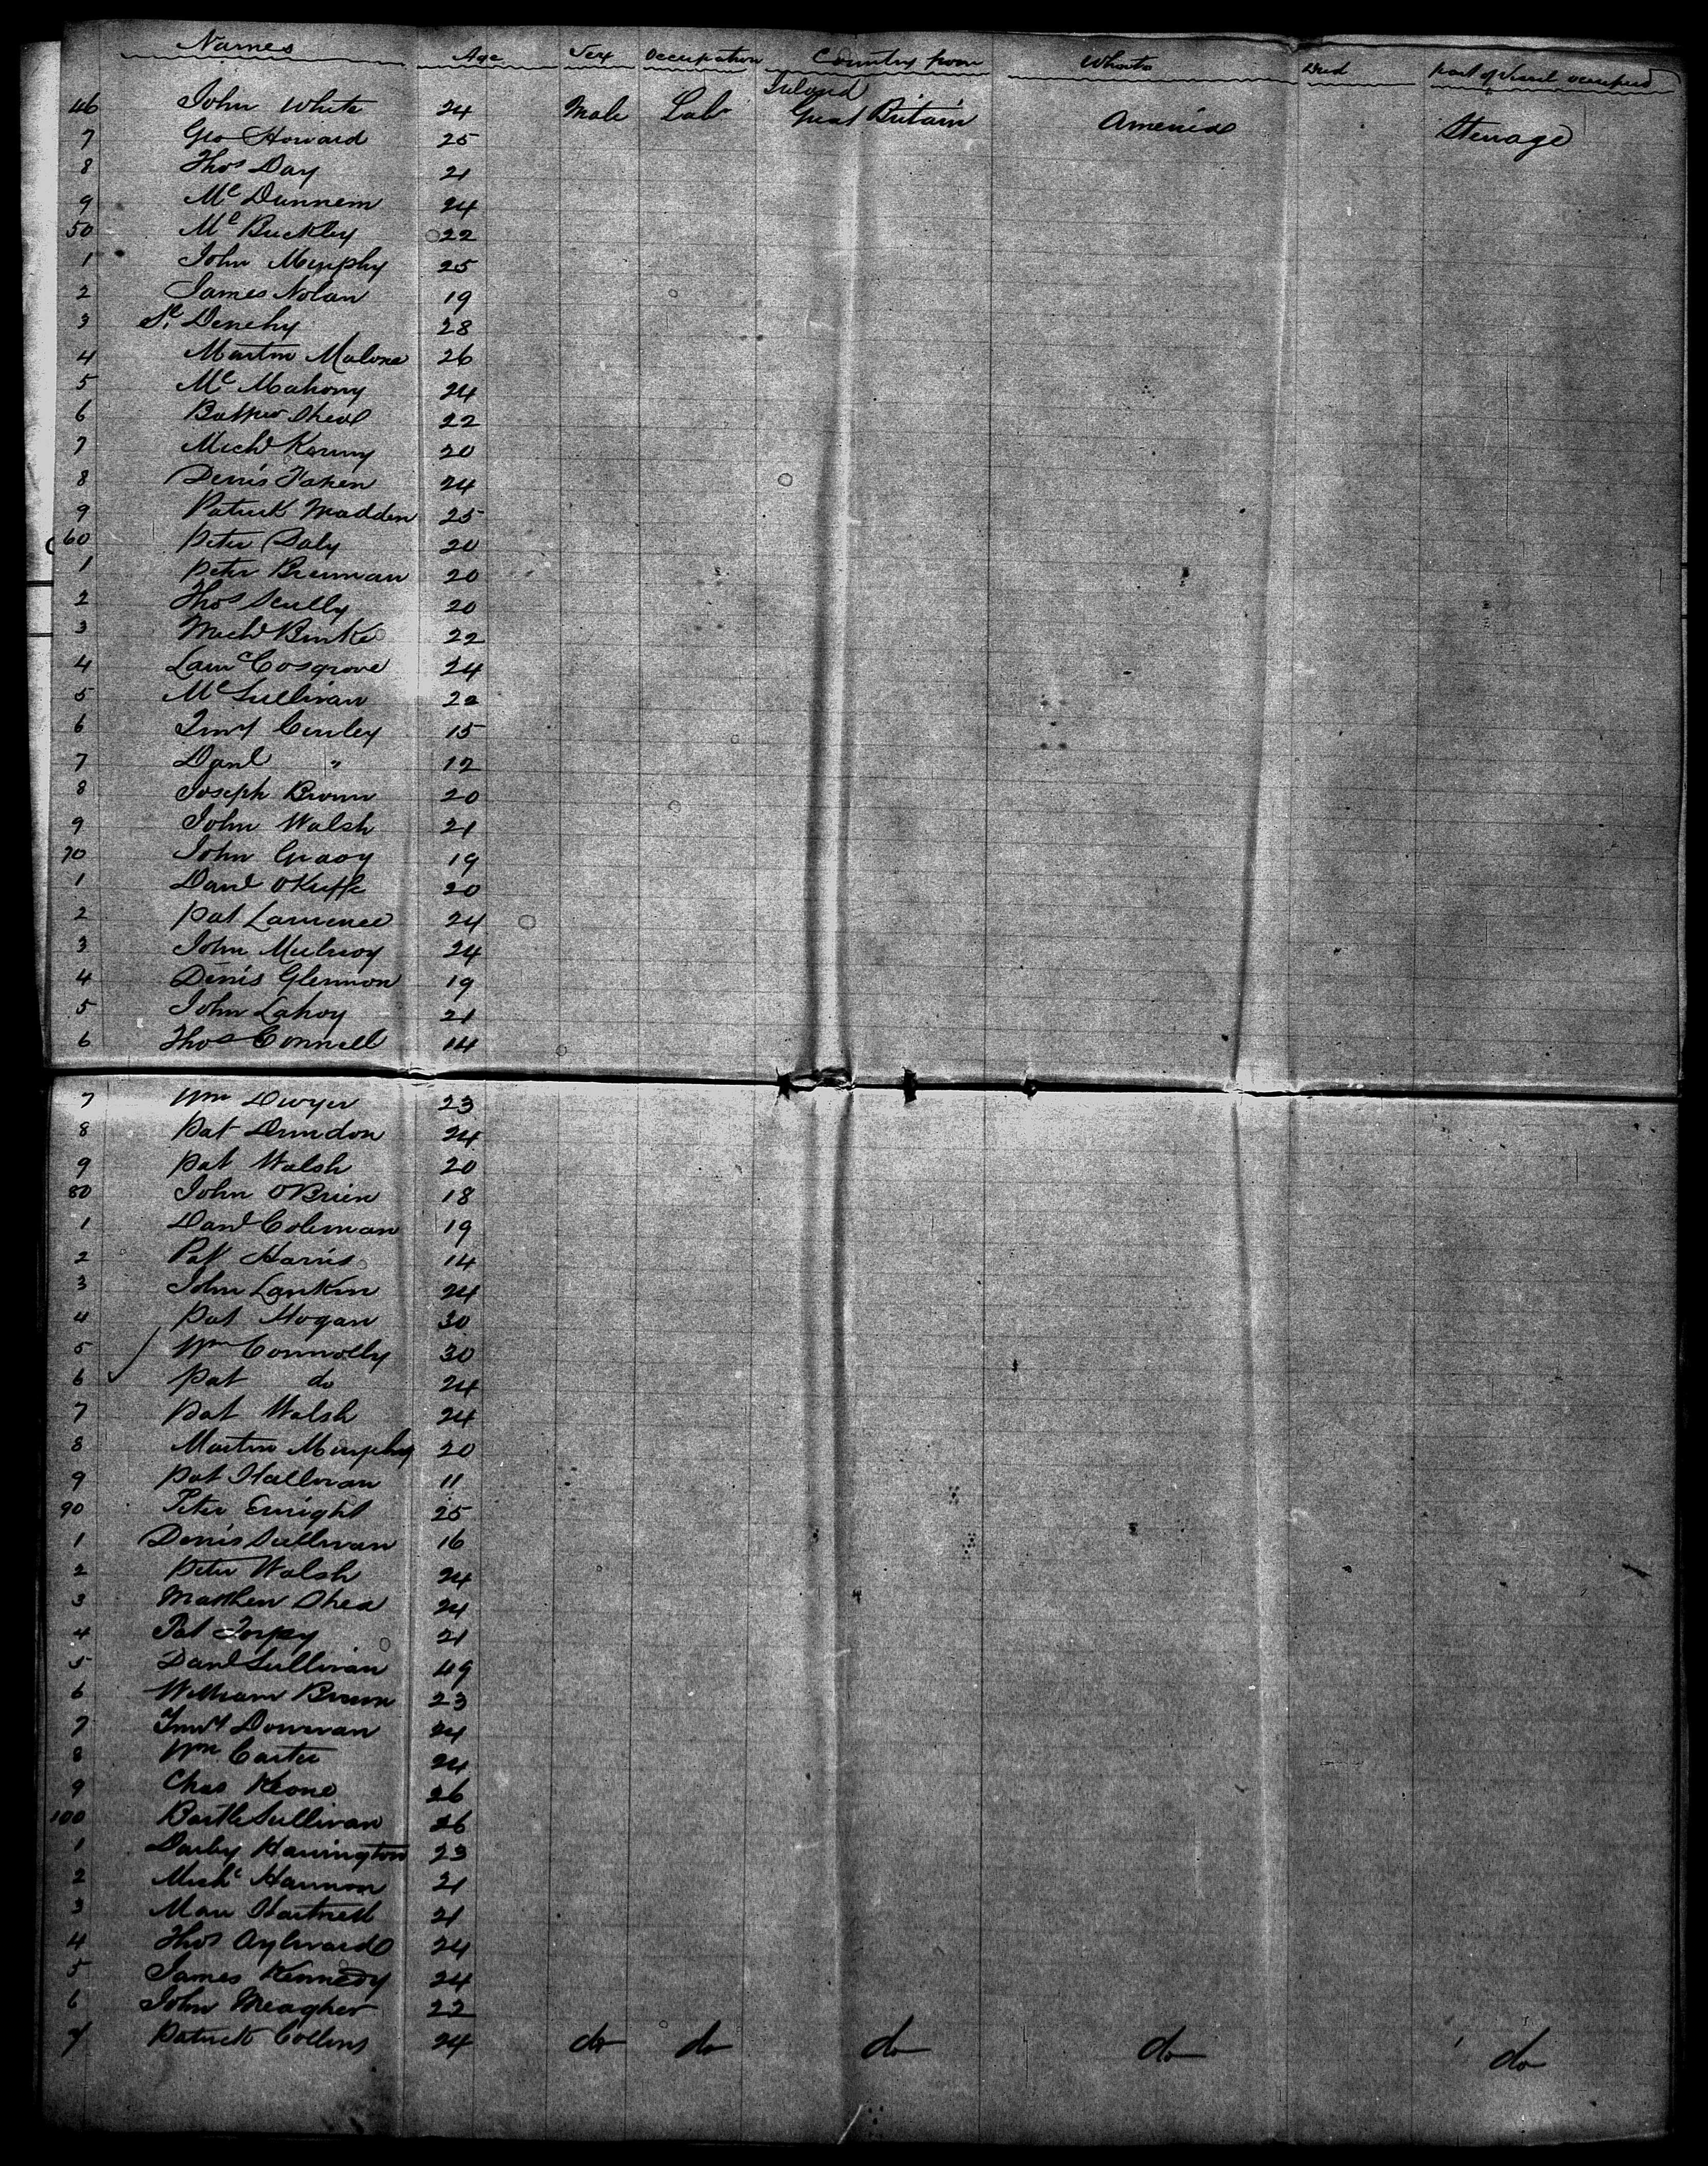 Names Age Sex Occupation Country from Whereto Died part of Vessel occupied
Ireland
46 John White 24 Male Lab Great Britain America Steerage
7 Geo Howard 25
8 Thos Day 21
9 Mc Dunnem 24
50 Mc Buckley 22
1 John Murphy 25
2 James Nolan 19
3 Denehy 28
4 Martin Malone 26
5 Mc Mahony 24
6 Shea 22
7 Michl 20
8 Denis 24
9 Patrick Madden 25
60 Peter Daly 20
1 Peter Brennan 20
2 Thos Scully 20
3 Michl Burke 22
4 Cosgrove 24
5 Mc Sullivan 22
6 Timy Curley 15
7 Danl " 12
8 Joseph Brown 20
9 John Walsh 21
70 John 19
1 Danl OKeiffe 20
2 Pat Lawrence 24
3 John Mulroy 24
4 Denis Glennon 19
5 John Lahoy 21
6 Thos Connell 14
7 Wm Dwyer 23
8 Pat Dundon 24
9 Pat Walsh 20
80 John OBrien 18
1 Danl Coleman 19
2 Pat Harris 14
3 John Lankin 24
4 Pat Hogan 30
5 Wm Connolly 30
6 Pat do 24
7 Pat Walsh 24
8 Martin Murphy 20
9 Pat Hallivan 11
90 Peter Enright 25
1 Denis Sullivan 16
2 Peter Walsh 24
3 Matthew Shea 24
4 Pat Torpy 21
5 Danl Sullivan 49
6 William Brown 23
7 Timy Donovan 24
8 Wm Carter 24
9 Chas Keone 26
100 Bartle Sullivan 26
1 Darby Harrington 23
2 Michl Hannon 21
3 Hartnett 21
4 Thos Aylward 24
5 James Kennedy 24
6 John Meagher 22
7 Patrick Collins 24 do do do do do